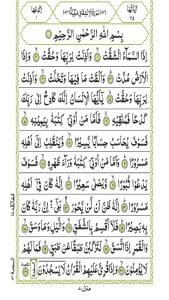 بِسْمِ اللهِ الرَّحْمٰنِ الرَّحِيْمِ
اِذَا السَّمَآءُ انْشَقَّتْ وَاَذِنَتْ لِرَبِّهَا وَحُقَّتْ وَاِذَا
الْاَرْضُ مُدَّتْ وَاَلْقَتْ مَا فِيْهَا وَتَخَلَّتْ وَاَذِنَتْ
لِرَبِّهَا وَحُقَّتْ يٰۤاَيُّهَا الْاِنْسَانُ اِنَّكَ كَادِحٌ اِلٰى رَبِّكَ
كَدْحًا فَمُلٰقِيْهِ فَاَمَّا مَنْ اُوْتِيَ كِتٰبَهٗ بِيَمِيْنِهٖ
فَسَوْفَ يُحَاسَبُ حِسَابًا يَّسِيْرًا وَّيَنْقَلِبُ اِلٰۤى اَهْلِهٖ
مَسْرُوْرًا وَاَمَّا مَنْ اُوْتِيَ كِتٰبَهٗ وَرَآءَ ظَهْرِهٖ فَسَوْفَ
يَدْعُوْا ثُبُوْرًا وَّيَصْلٰى سَعِيْرًا اِنَّهٗ كَانَ فِيْۤ اَهْلِهٖ
مَسْرُوْرًا اِنَّهٗ ظَنَّ اَنْ لَّنْ يَّحُوْرَ بَلٰۤى اِنَّ رَبَّهٗ كَانَ
بِهٖ بَصِيْرًا فَلَاۤ اُقْسِمُ بِالشَّفَقِ وَالَّيْلِ وَمَا وَسَقَ
وَالْقَمَرِ اِذَا اتَّسَقَ لَتَرْكَبُنَّ طَبَقًا عَنْ طَبَقٍ فَمَا لَهُمْ
لَا يُؤْمِنُوْنَ وَاِذَا قُرِئَ عَلَيْهِمُ الْقُرْاٰنُ لَا يَسْجُدُوْنَ